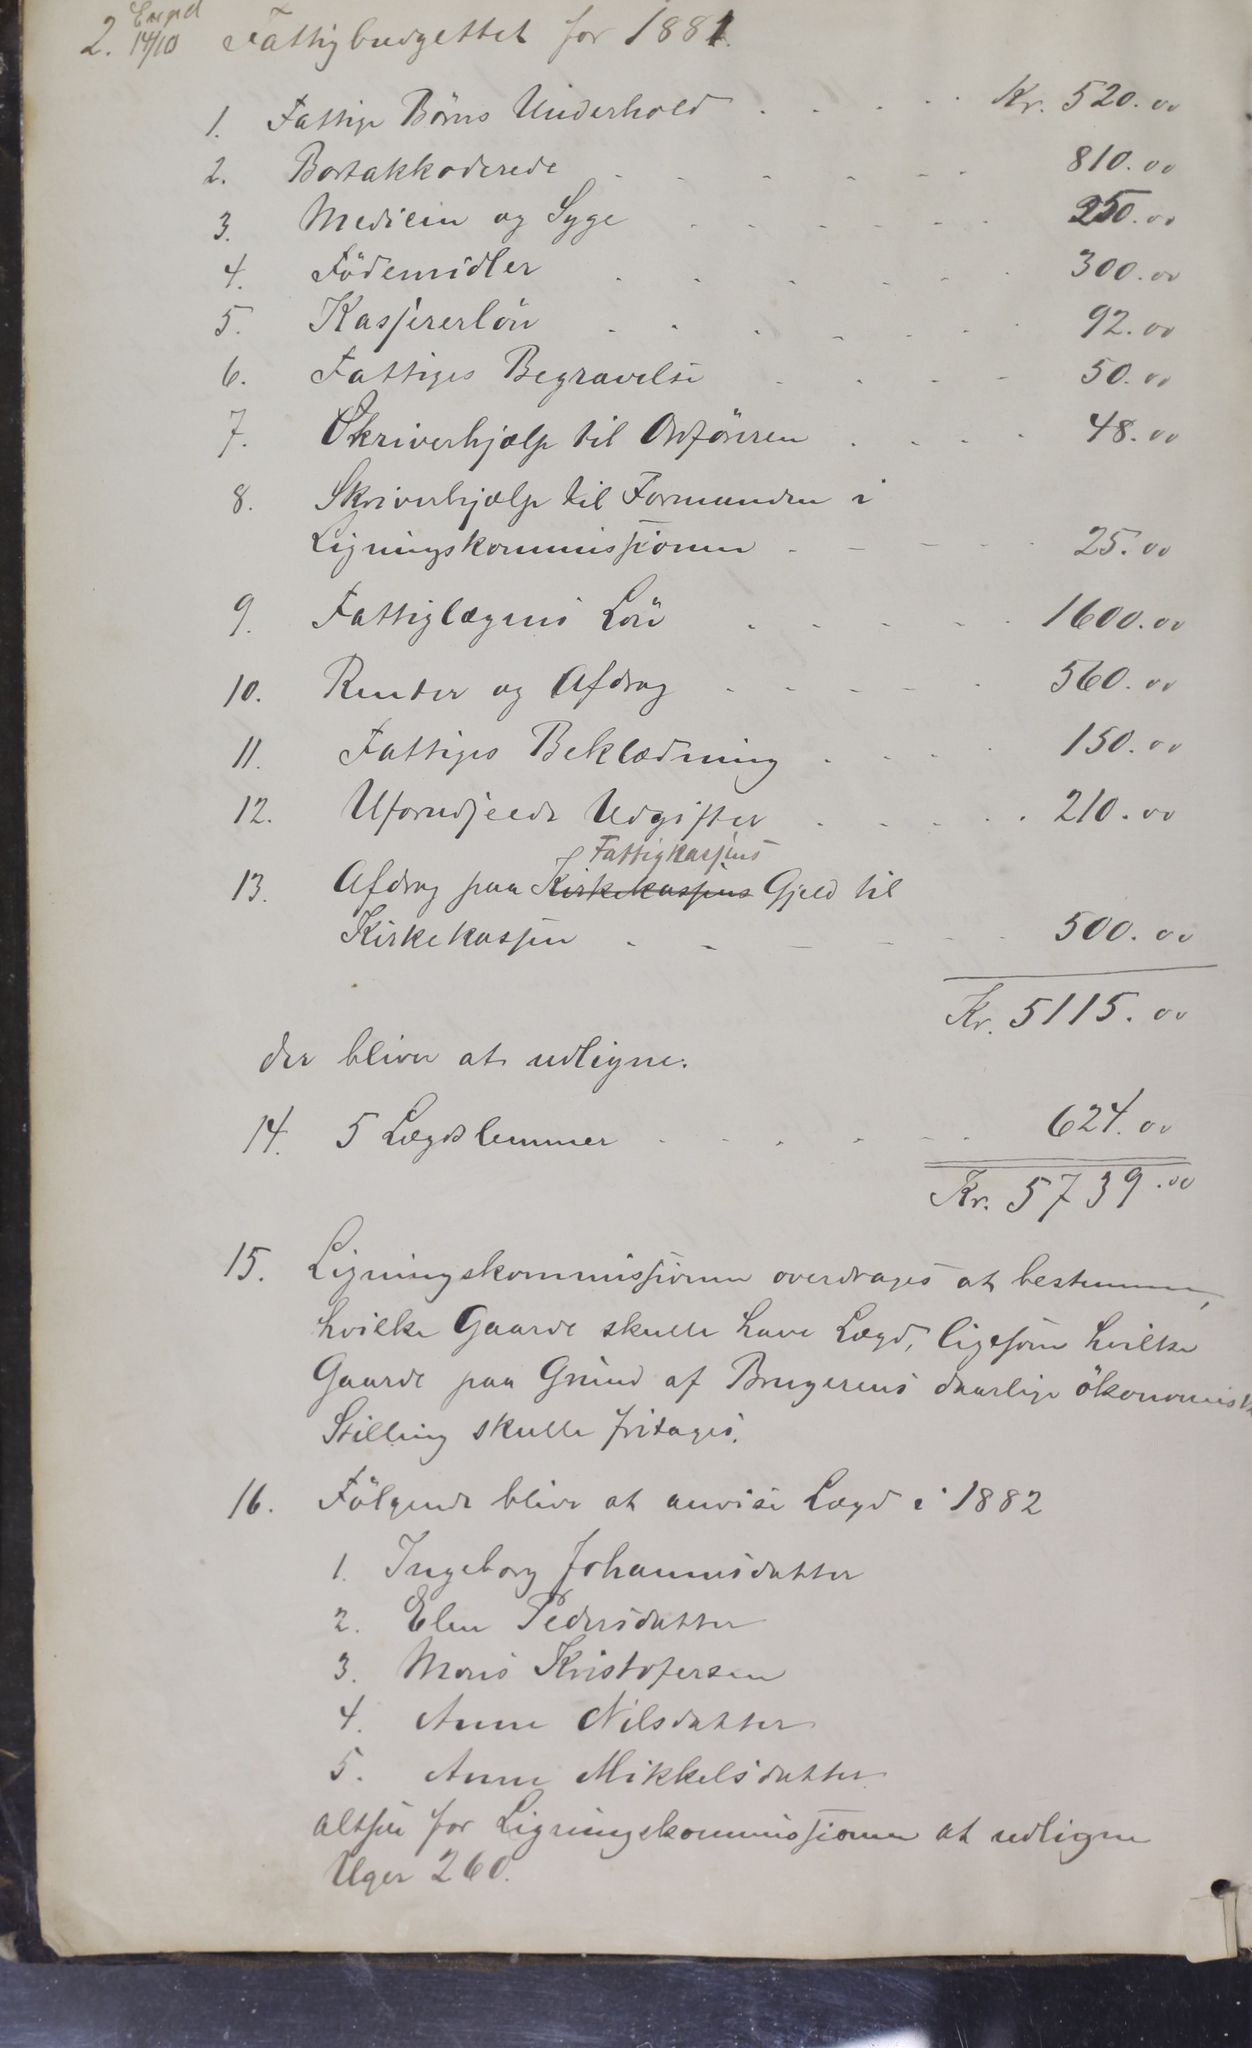 Exped
2. 14/10 Fattigbudgettet for 1881.
1. Fattige Börns Underhold . . . . . Kr. 520.00
2. Bortakkoderede . . . . . . 810.00
3. Medicin og Syge . . . . . . 250.00
4. Födemidler . . . . . . 300.00
5. Kassererlön . . . . . . 92.00
6. Fattiges Begravelse . . . . 50.00
7. Skriverhjælp til Ordföreren . . . . 48.00
8. Skriverhjælp til Formanden i
Ligningskommissionen . - - - . 25.00
9. Fattiglægens Lön . . . . . 1600.00
10. Renter og Afdrag . . . . . 560.00
11. Fattiges Beklædning . . . . 150.00
12. Uforudseede Udgifter . . . . . 210.00
Fattigkassens
13. Afdrag paa Kirkekassens Gjeld til
Kirkekassen . - - - - . 500.00
Kr. 5115.00
der bliver at udligne.
14. 5 Lægdslemmer . . . . . . 624.00
Kr. 5739.00
15. Ligningskommissionen overdrages at bestemme,
hvilke Gaarde skulle have Lægd, ligesom hvilke
Gaarde paa Grund af Brugerens daarlige ökonomiske
Stilling skulle fritages.
16. Fölgende blive at anvise Lægd i 1882
1. Ingeborg Johannesdatter
2. Elen Pedersdatter
3. Mons Kristofersen
4. Anne Nilsdatter
5. Anne Mikkelsdatter
altsaa for Ligningskommissionen at udligne
Uger 260.